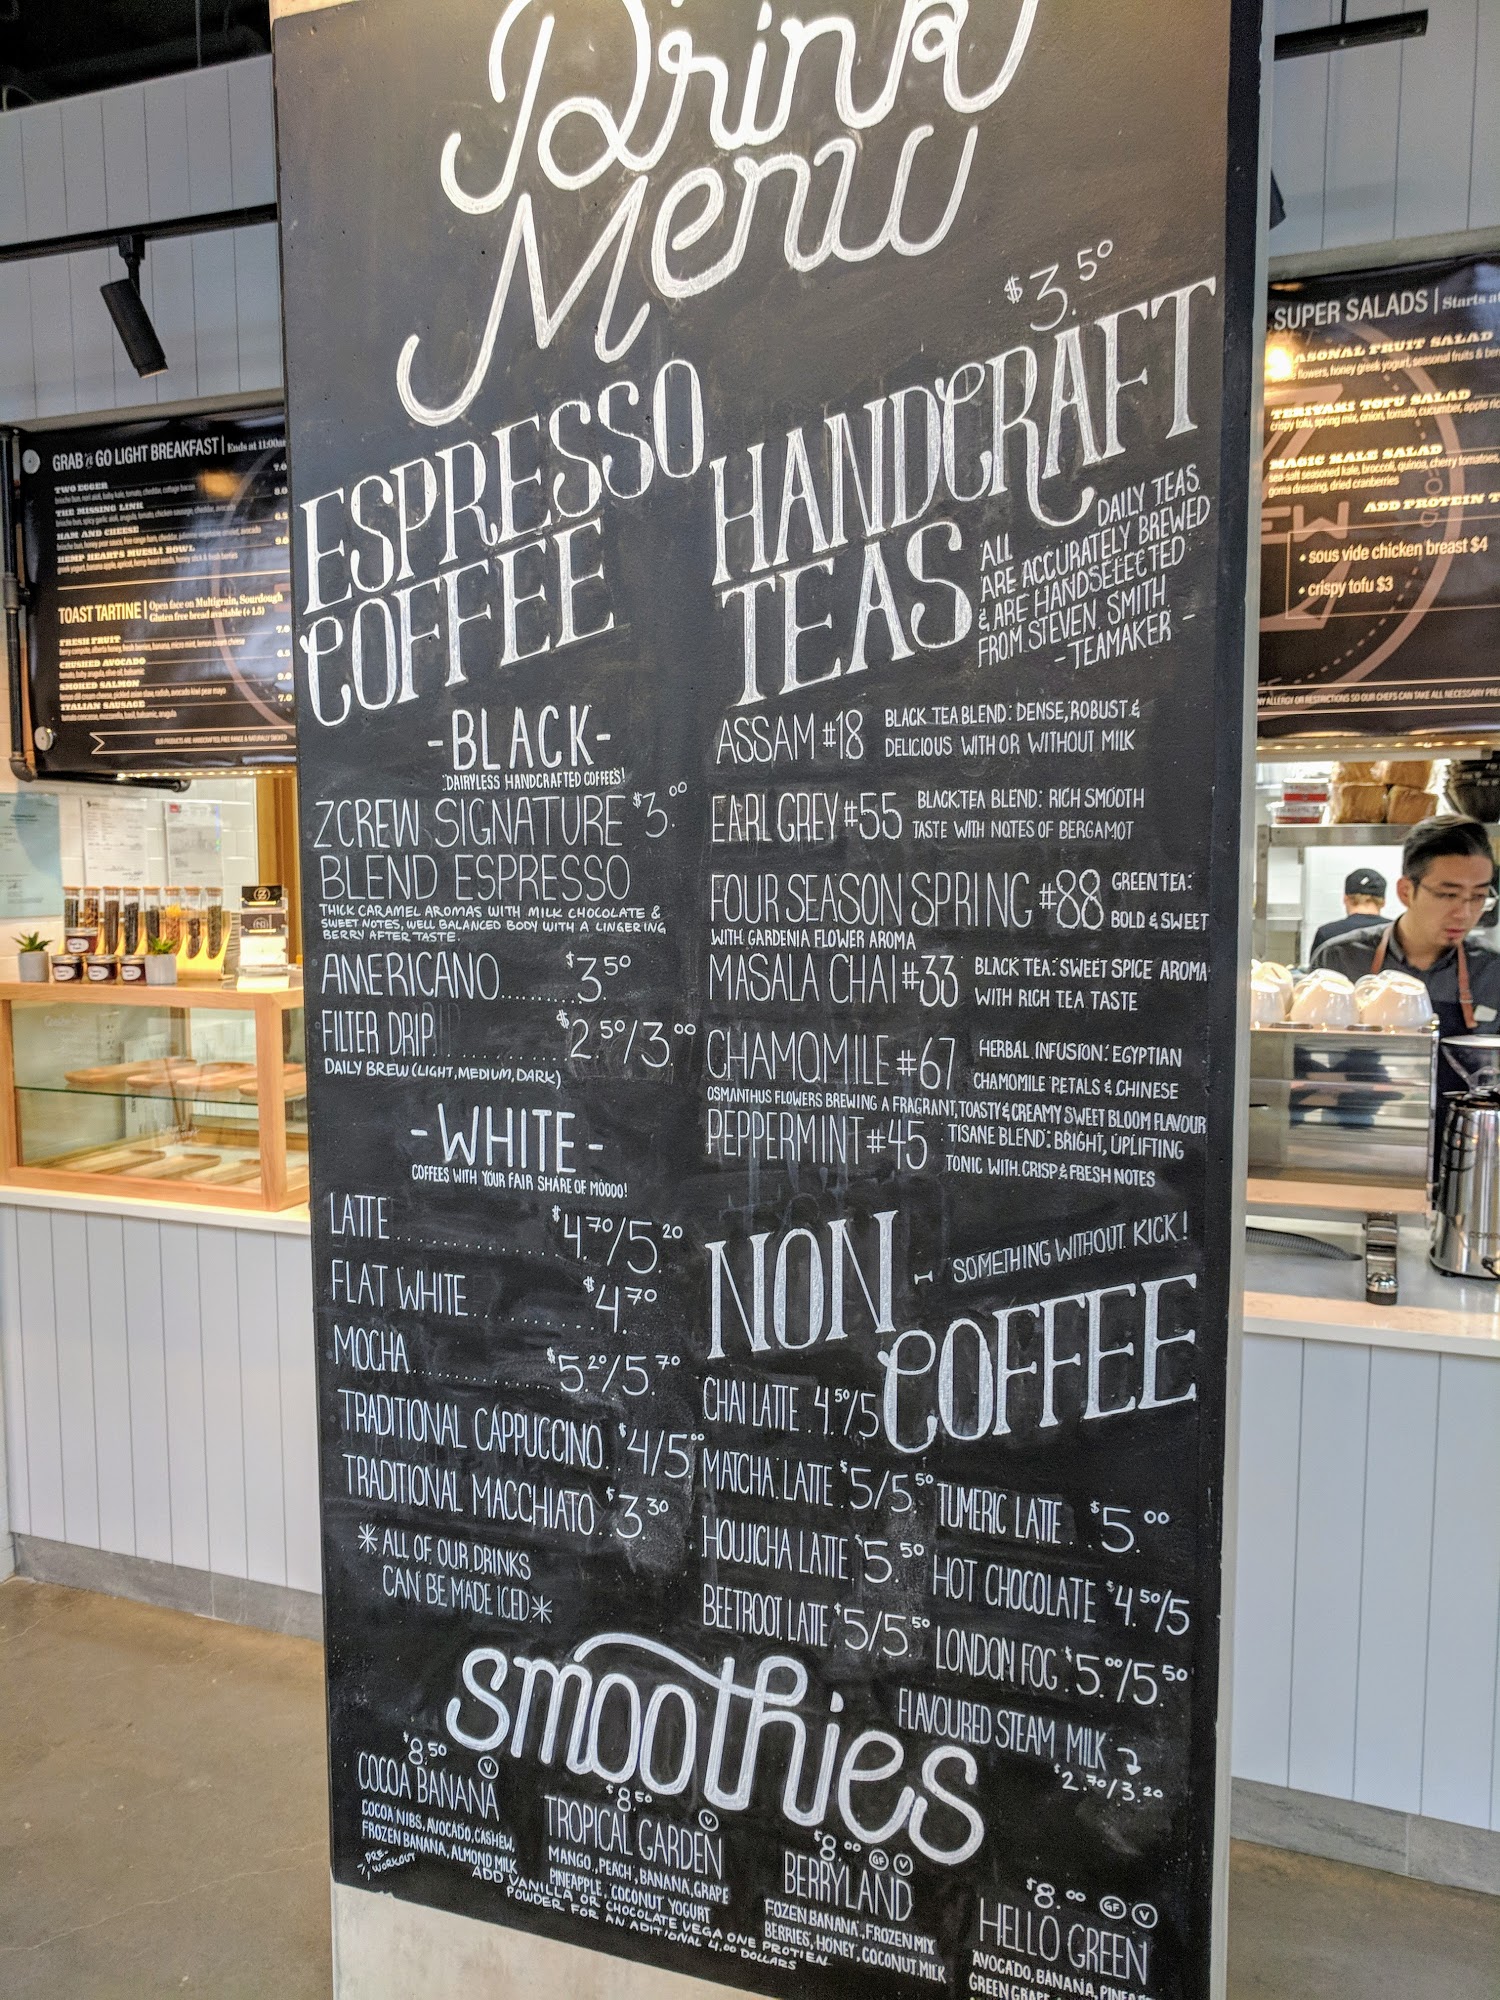 Drink
Menu
ESPRESSO
COFFEE
-BLACK-
DAIRYLESS HANDCRAFTED COFFEES!
ZCREW SIGNATURE $3.00
BLEND ESPRESSO
THICK CARAMEL AROMAS WITH MILK CHOCOLATE &
SWEET NOTES, WELL BALANCED BODY WITH A LINGERING
BERRY AFTER TASTE.
AMERICANO..........$3.50
FILTER DRIP............$2.50/3.00
DAILY BREW (LIGHT, MEDIUM, DARK)
-WHITE-
COFFEES WITH YOUR FAIR SHARE OF MOOOO!
LATTE..............$4.70/5.20
FLAT WHITE.........$4.70
MOCHA..............$5.20/5.70
TRADITIONAL CAPPUCCINO..$4/5.00
TRADITIONAL MACCHIATO..$3.30
*ALL OF OUR DRINKS
CAN BE MADE ICED*
$3.50
HANDCRAFT
TEAS
ALL DAILY TEAS
ARE ACCURATELY BREWED
& ARE HANDSELECTED
FROM STEVEN SMITH
-TEAMAKER-
ASSAM #18 BLACK TEA BLEND: DENSE, ROBUST &
DELICIOUS WITH OR WITHOUT MILK
EARL GREY #55 BLACK TEA BLEND: RICH SMOOTH
TASTE WITH NOTES OF BERGAMOT
FOUR SEASON SPRING #88 GREEN TEA:
BOLD & SWEET
WITH GARDENIA FLOWER AROMA
MASALA CHAI #33 BLACK TEA: SWEET SPICE AROMA
WITH RICH TEA TASTE
CHAMOMILE #67 HERBAL INFUSION: EGYPTIAN
CHAMOMILE PETALS & CHINESE
OSMANTHUS FLOWERS BREWING A FRAGRANT, TOASTY & CREAMY SWEET BLOOM FLAVOUR
PEPPERMINT #45 TISANE BLEND: BRIGHT, UPLIFTING
TONIC WITH CRISP & FRESH NOTES
NON-
COFFEE
SOMETHING WITHOUT KICK!
CHAI LATTE. 4.50/5
MATCHA LATTE $5/5.50
HOUJICHA LATTE $5.50
BEETROOT LATTE $5/5.50
TUMERIC LATTE.. $5.00
HOT CHOCOLATE $4.50/5
LONDON FOG $5.00/5.50
FLAVOURED STEAM MILK
$2.70/3.20
smoothies
$8.50 V
COCOA BANANA
COCOA NIBS, AVOCADO, CASHEW,
FROZEN BANANA, ALMOND MILK
PRE-
WORKOUT
$8.50 V
TROPICAL GARDEN
MANGO, PEACH, BANANA, GRAPE
PINEAPPLE, COCONUT YOGURT
$8.00 GF V
BERRYLAND
FOZEN BANANA, FROZEN MIX
BERRIES, HONEY, COCONUT MILK
$8.00 GF V
HELLO GREEN
AVOCADO, BANANA,
GREEN
ADD VANILLA OR CHOCOLATE VEGA ONE PROTIEN
POWDER FOR AN ADITIONAL 4.00 DOLLARS
GRAB n GO LIGHT BREAKFAST | Ends at
TWO EGGER
THE MISSING LINK
HAM AND CHEESE
HEMP HEARTS MUESLI BOWL
TOAST TARTINE | Open face on Multigrain, Sourdough
Gluten free bread available (+ 1.5)
FRESH FRUIT
CRUSHED AVOCADO
SMOKED SALMON
ITALIAN SAUSAGE
SUPER SALADS | Starts at
FRUIT SALAD
flowers, honey greek yogurt, seasonal fruits &
TERIYAKI TOFU SALAD
crispy tofu, spring mix, onion, tomato, cucumber, apple
MAGIC KALE SALAD
sea-salt seasoned kale, broccoli, quinoa, cherry tomatoes,
goma dressing, dried cranberries
ADD PROTEIN
• sous vide chicken breast $4
• crispy tofu $3
ALLERGY OR RESTRICTIONS SO OUR CHEFS CAN TAKE ALL NECESSARY